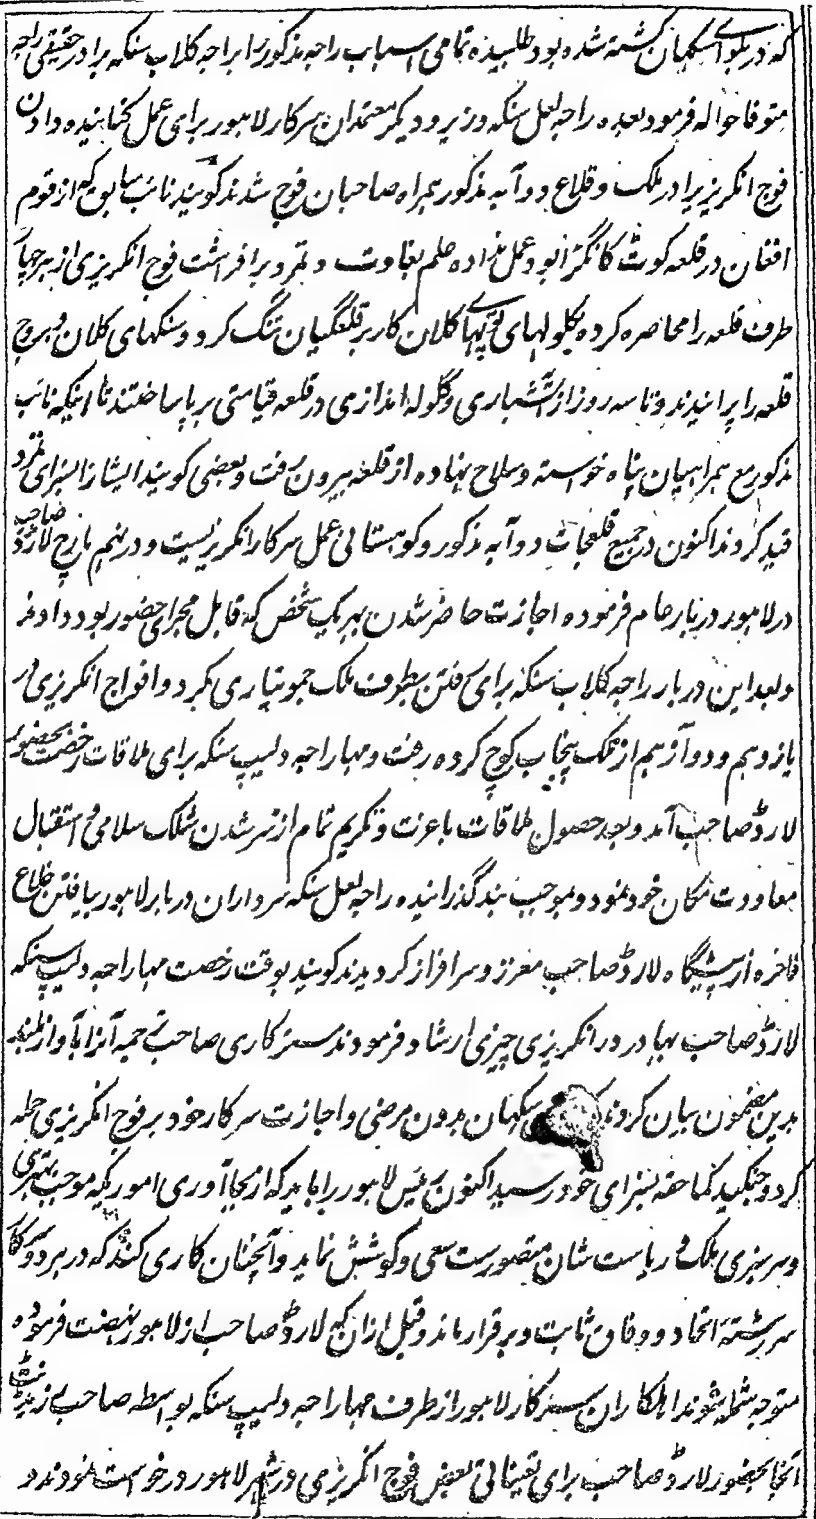 که در بلوای سکهان کشته شده بود طلبیده تمامی اسباب راجه مذکور را براجه کلاب سنکه برادر حقیقی راجه
متوفا حواله فرمود بعده راجه لعل سنکه وزیر و دیکر معتمدان سرکار لاهور برای عمل کنانیده دادن
فوج انکریزیرا در ملک و قلاع دوآبه مذکور همراه صاحبان فوج شدند کویند نائب سابق که از قوم
افغان در قلعه کوٹ کانگڑا بود عمل نداده علم بغاوت و تمرد برافراشت فوج انکریزی از هر چار
طرف قلعه را محاصره کرده بکولهای توپهای کلان کار بر قلعگیان تنگ کرد و سنکهای کلان و بروج
قلعه را پرانیدند و تا سه روز از آتشباری و گوله اندازی در قلعه قیامتی برپا ساختند تا اینکه نائب
مذکور مع همراهیان پناه خواسته و سلاح نهاده از قلعه بیرون رفت و بعضی کویند ایشانرا بسزای تمرد
قید کردند اکنون در جمیع قلعجات دوآبه مذکور و کوهستانی عمل سرکار انکریزیست و در نهم مارچ لارڈ صاحب
در لاهور دربار عام فرموده اجازت حاضر شدن هر یک شخص که قابل مجرای حضور بود دادند
و بعد این دربار راجه کلاب سنکه برای رفتن بطرف ملک جمو تیاری کرد و افواج انکریزی در
یازدهم و دوازدهم از ملک پنجاب کوچ کرده رفت و مهاراجه دلیپ سنکه برای ملاقات رخصت بحضور
لارڈ صاحب آمد و بعد حصول ملاقات باعزت و تکریم تمام از سر شدن شلک سلامی و استقبال
معاودت مکان خود نمود و بموجب نذر گذرانیده راجه لعل سنکه سرداران دربار لاهور بیافتن خلاع
فاخره از پیشگاه لارڈ صاحب معزز و سرافراز کردیدند کویند بوقت رخصت مهاراجه دلیپ سنکه
لارڈ صاحب بهادر در انکریزی چیزی ارشاد فرمودند مستر کاری صاحب ترجمه آنرا بآواز بلند
بدین مضمون بیان کردند سکهان بدون مرضی و اجازت سرکار خود بر فوج انکریزی حمله
کرد و جنکید کما حقه بسزای خود رسید اکنون رئیس لاهور را باید که از بجا آوری امور یکه موجب بهتری
و سرسبزی ملک و ریاست شان متصورست سعی و کوشش نماید و آنچنان کاری کند که در هر دو سرکار
سررشته اتحاد و وفاق ثابت و برقرار ماند و قبل ازان که لارڈ صاحب از لاهور نهضت فرموده
متوجه شمله شوند اهلکاران سرکار لاهور از طرف مهاراجه دلیپ سنکه بواسطه صاحب رزیڈنٹ
آنجا بحضور لارڈ صاحب برای تعیناتی بعض فوج انکریزی در شهر لاهور درخواست نمودند و